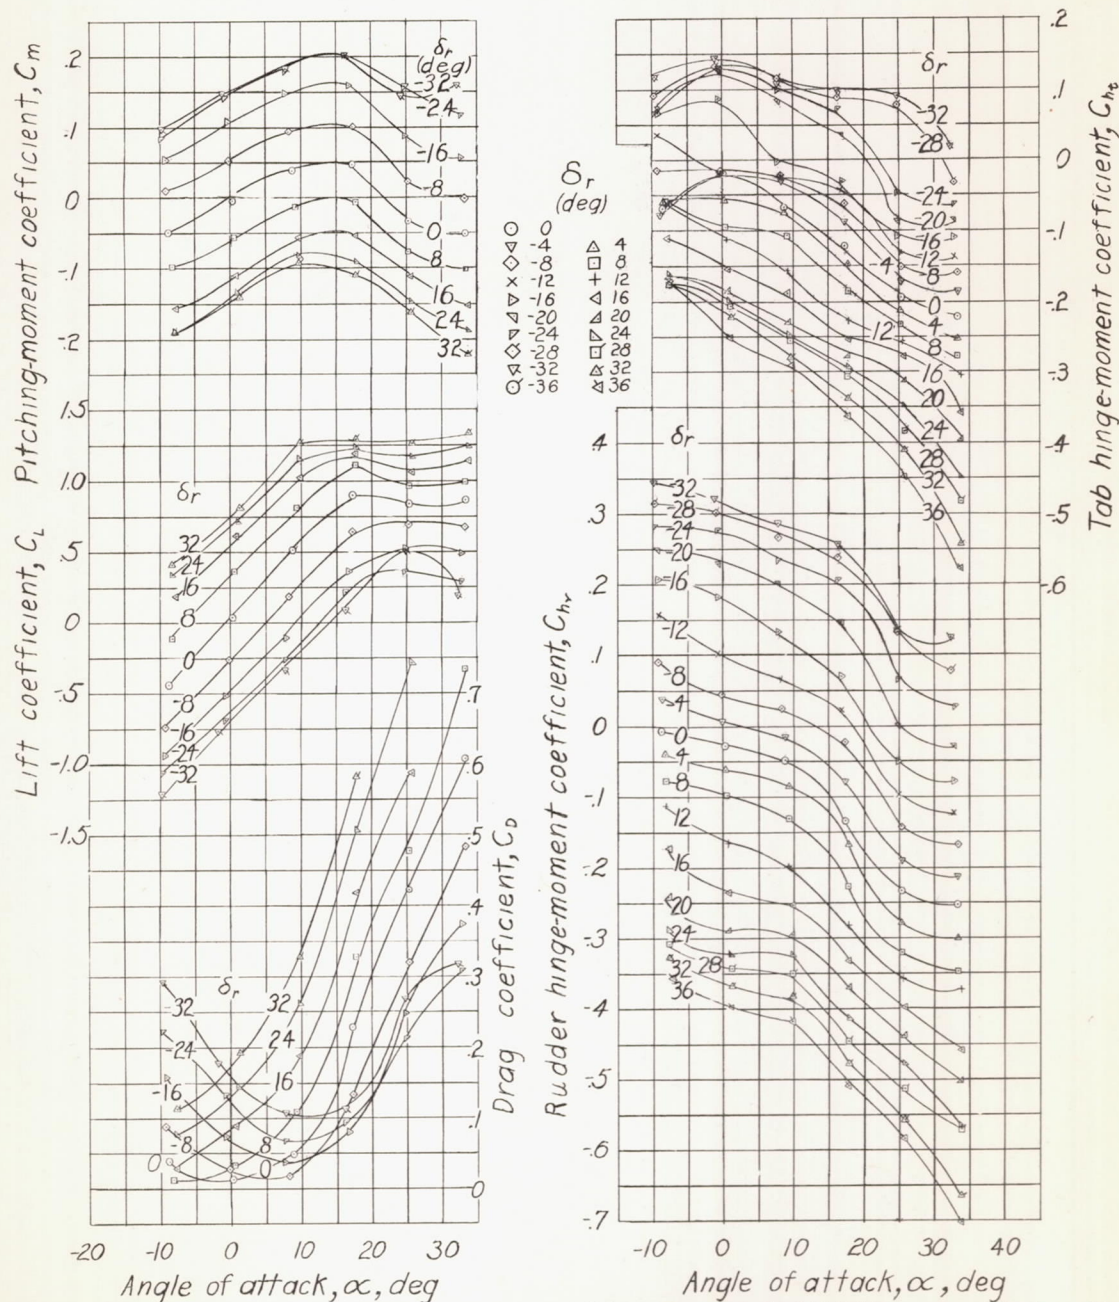 Pitching-moment coefficient, Cm
.2
.1
0
-.1
.2
δr
(deg)
-32
-24
-16
-8
0
8
16
24
32
Lift coefficient, CL
1.5
1.0
.5
0
-.5
-1.0
-1.5
δr
32
24
16
8
0
-8
-16
-24
-32
Drag coefficient, CD
.7
.6
.5
.4
.3
.2
.1
0
δr
-32
-24
-16
-8
0
32
24
16
8
0
-20 -10 0 10 20 30
Angle of attack, α, deg
δr
(deg)
0
-4 4
-8 8
-12 12
-16 16
-20 20
-24 24
-28 28
-32 32
-36 36
Tab hinge-moment coefficient, Cht
.2
.1
0
-.1
-.2
-.3
-.4
-.5
-.6
δr
-32
-28
-24
-20
16
12
-8
-4
0
4
12
8
16
20
24
28
32
36
Rudder hinge-moment coefficient, Chr
.4
.3
.2
.1
0
-.1
-.2
-.3
-.4
-.5
-.6
-.7
δr
-32
-28
-24
-20
-16
-12
-8
-4
0
4
8
12
16
20
24
32 28
36
-10 0 10 20 30 40
Angle of attack, α, deg